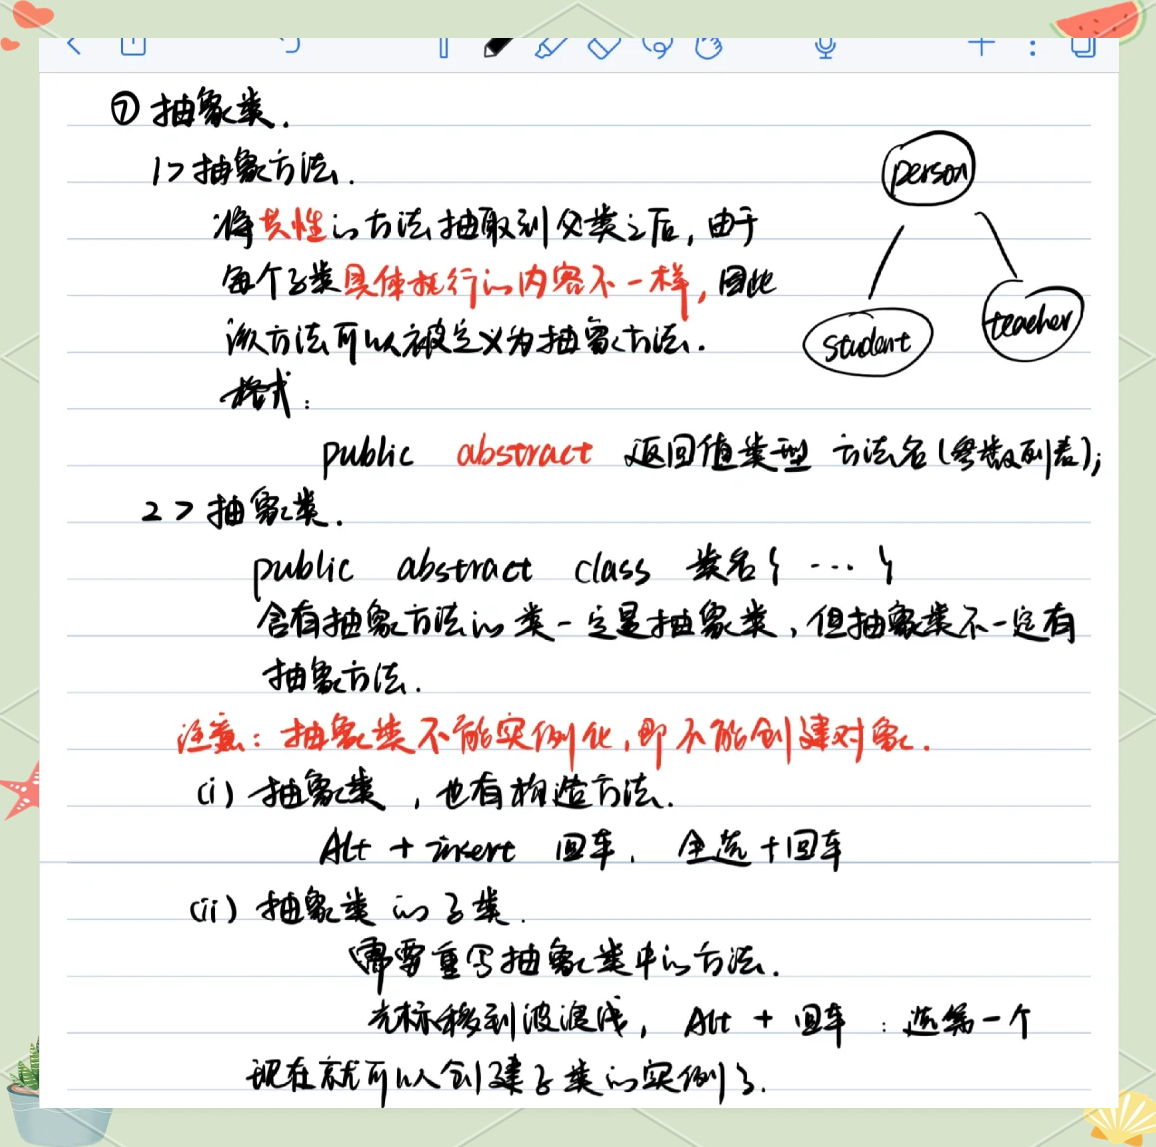 ⑦ 抽象类.
1> 抽象方法.
将共性的方法抽取到父类之后, 由于
每个子类具体执行的内容不一样, 因此
该方法可以被定义为抽象方法.
格式:
public abstract 返回值类型 方法名(参数列表);
2> 抽象类.
public abstract class 类名{ ... }
含有抽象方法的类一定是抽象类, 但抽象类不一定有
抽象方法.
注意: 抽象类不能实例化, 即不能创建对象.
(i) 抽象类, 也有构造方法.
Alt + insert 回车, 全选+回车
(ii) 抽象类的子类.
需要重写抽象类中的方法.
光标移到波浪线, Alt + 回车 : 选第一个
现在就可以创建子类的实例了.
person
student
teacher